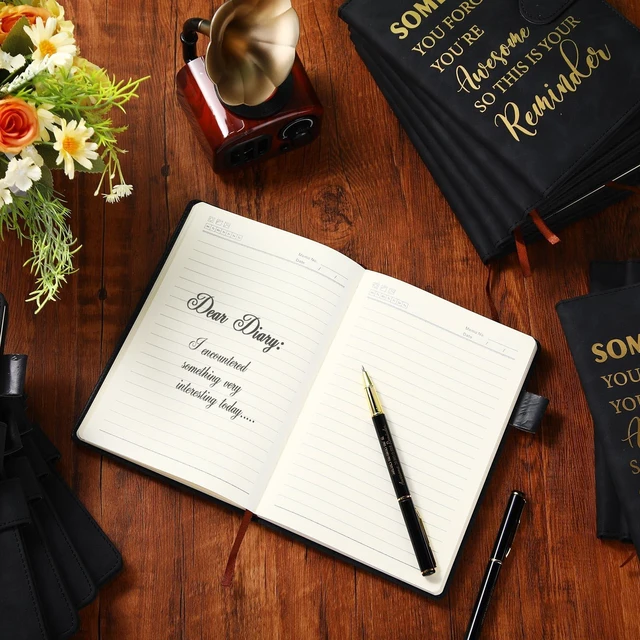 SOME
YOU FORG
YOU'RE
Awesome
SO THIS IS YOUR
Reminder
Memo No.
Date / /
Memo No.
Date / /
Dear Diary:
I encountered
something very
interesting today.....
SOM
YOU
YO
A
S